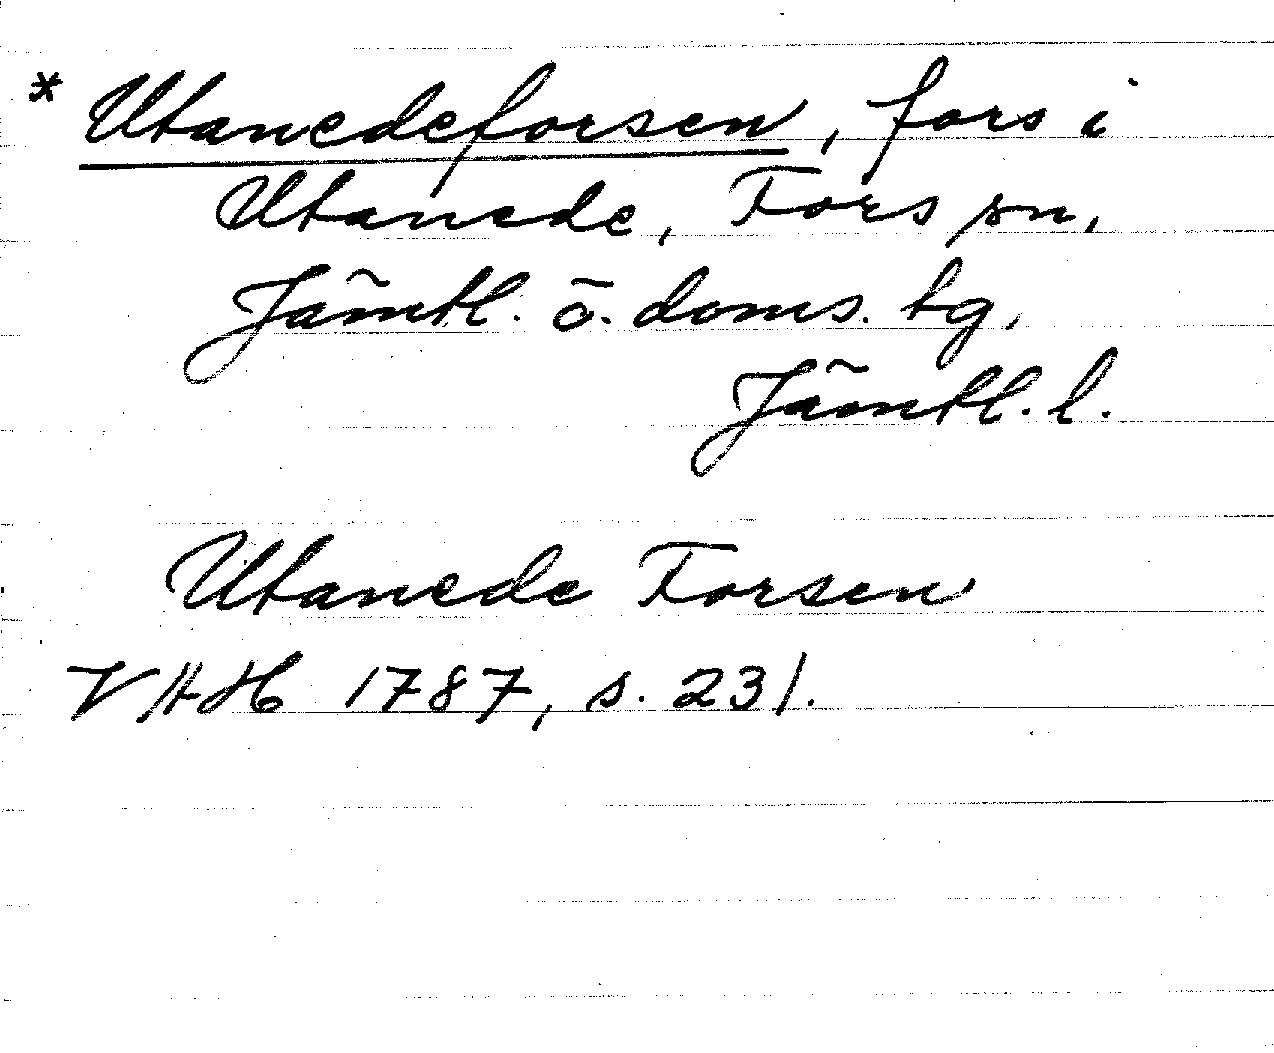 * Utanedeforsen, fors i
Utanede, Fors sn,
Jämtl. ö. doms. tg,
Jämtl. l.
Utanede Forsen
VAH 1787, s. 231.